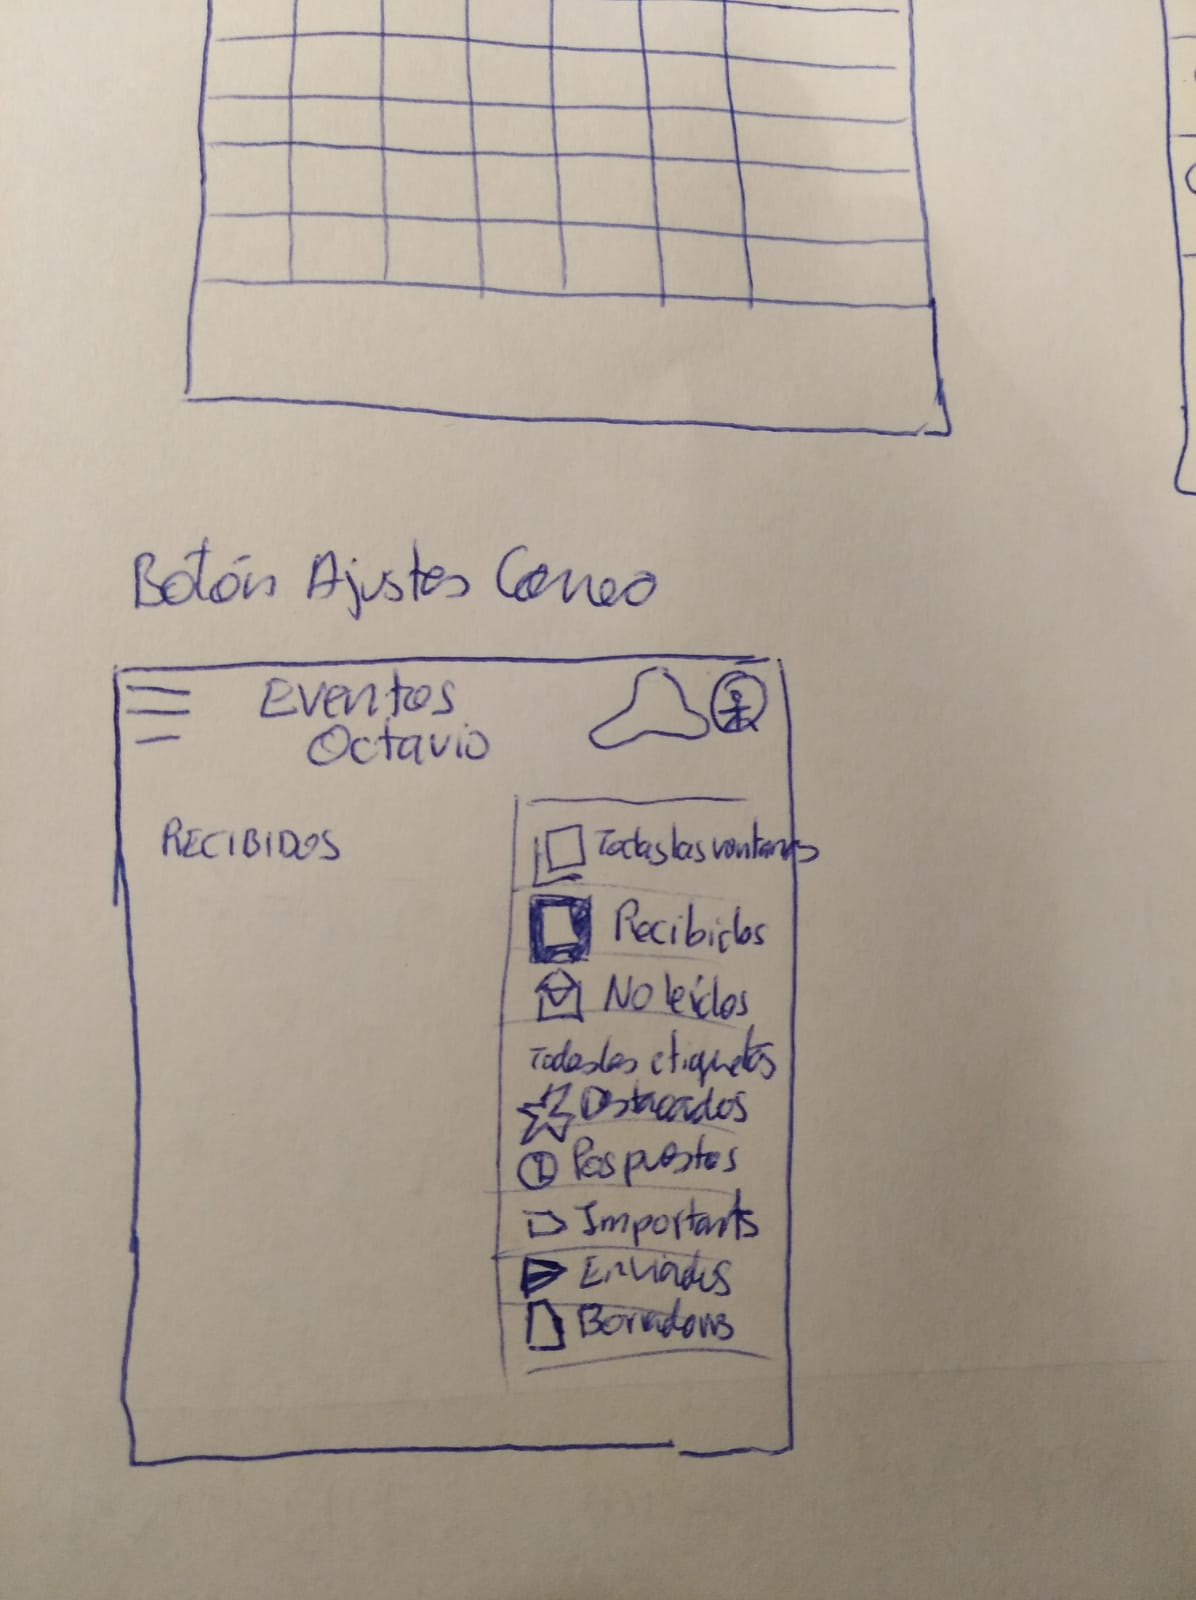 Botón Ajustes Correo
Eventos
Octavio
RECIBIDOS
Todas las ventanas
Recibidos
No leídos
Todas las etiquetas
Destacados
Pospuestos
Importants
Enviados
Borradores